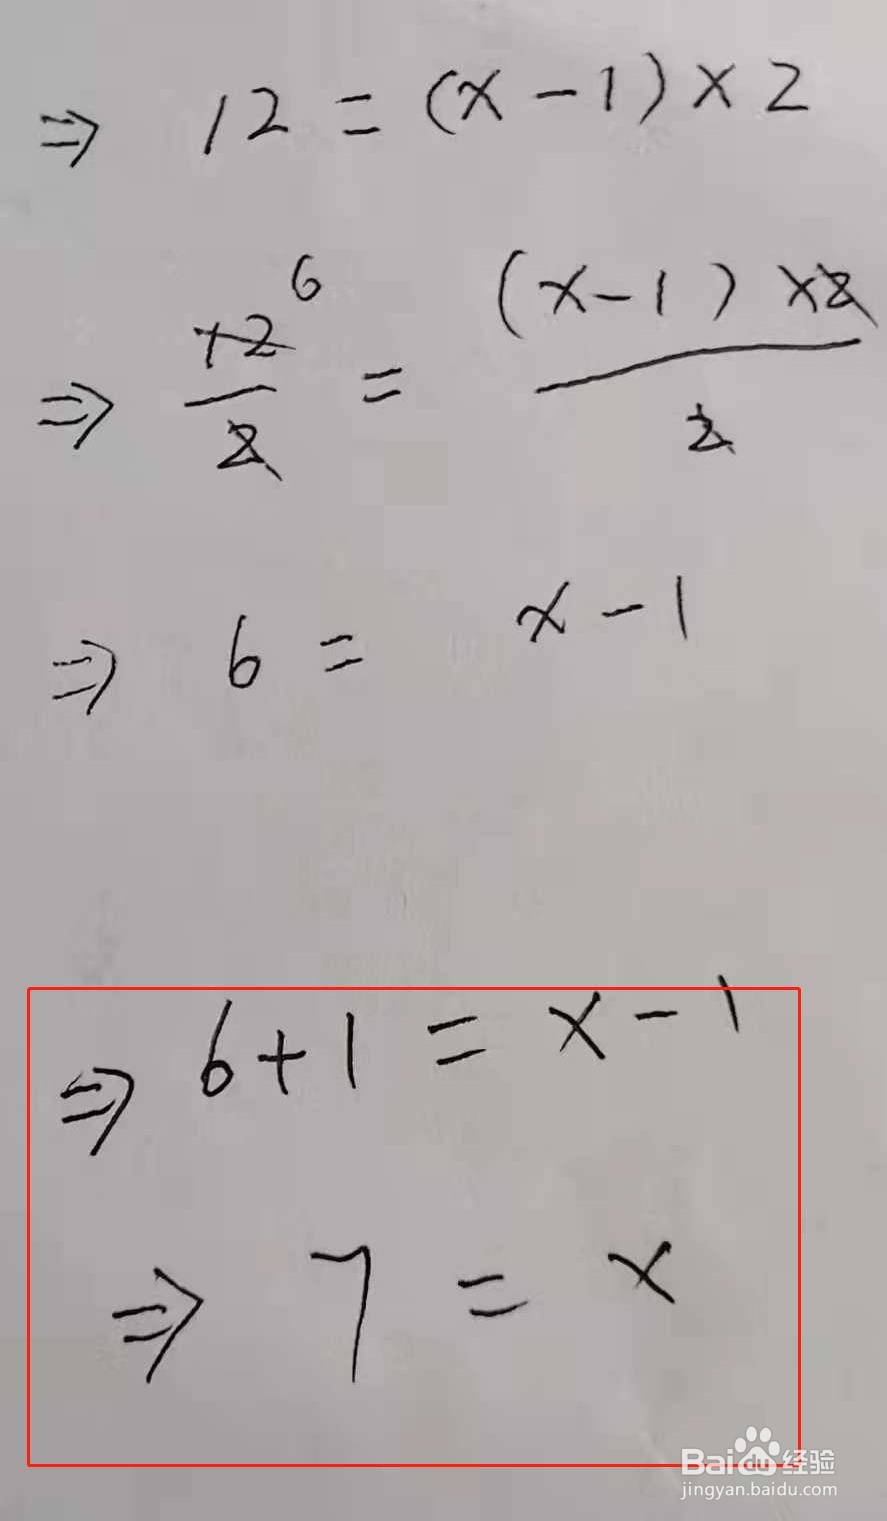 ⇒ 12 = (x - 1) × 2
⇒ 12/2 6 = (x - 1) × 2/2
⇒ 6 = x - 1
⇒ 6 + 1 = x - 1
⇒ 7 = x
Baidu 经验
jingyan.baidu.com